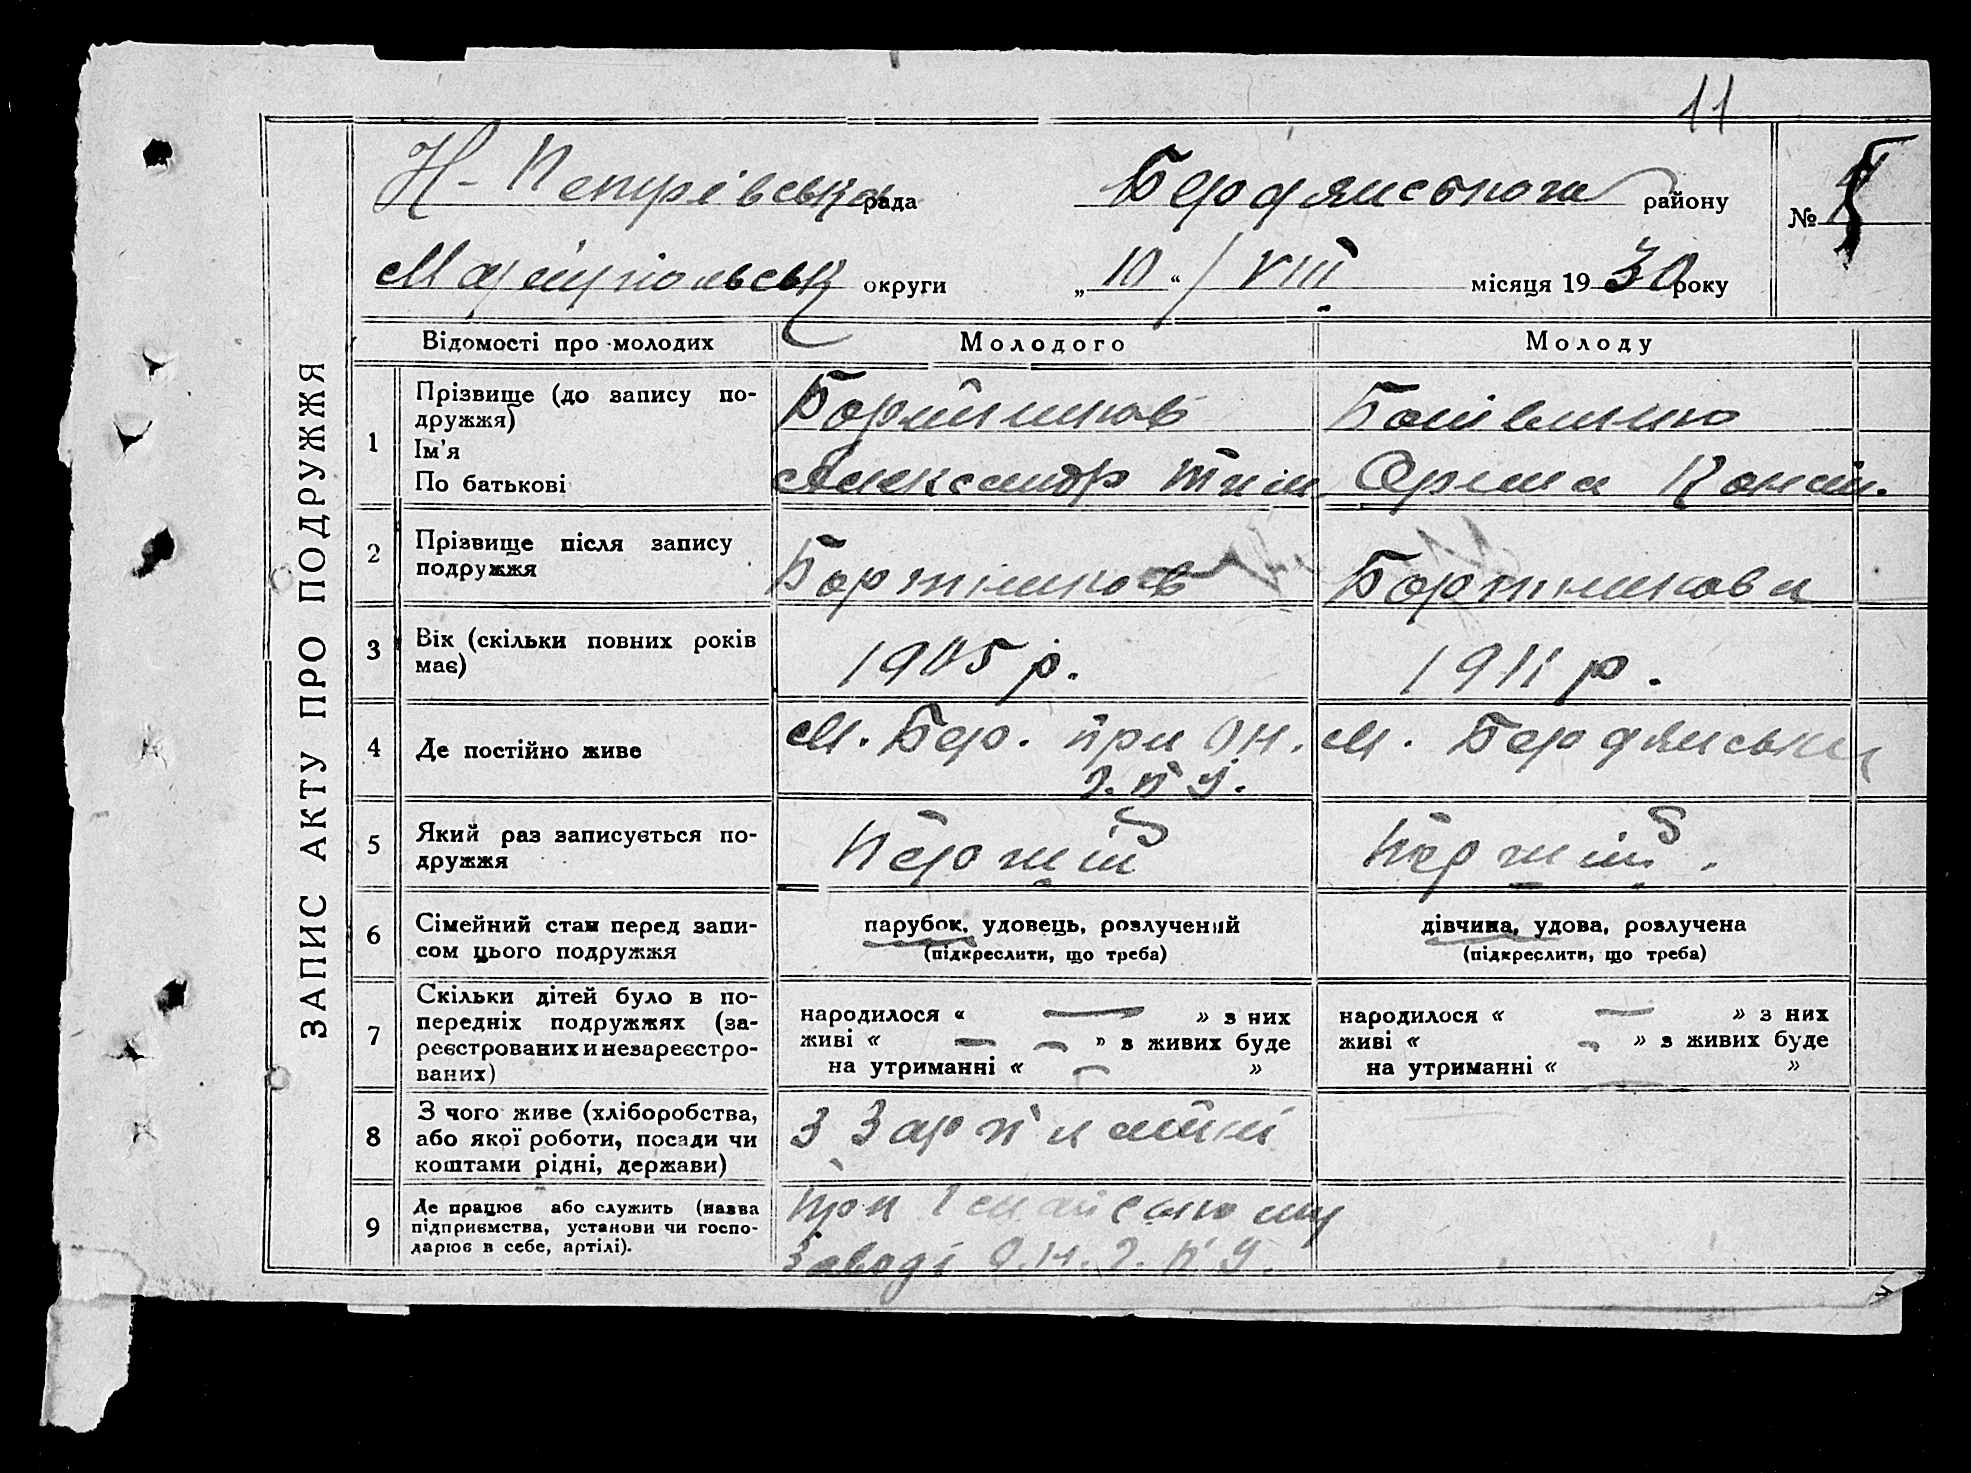 11
ЗАПИС АКТУ ПРО ПОДРУЖЖЯ
Н-Петрівська рада Бердянського району
№
округи „10“ / VIII місяця 1930 року
Відомості про молодих Молодого Молоду
1 Прізвище (до запису по-
дружжя)
Ім'я
По батькові
Бортніков
Александр
Орина Конст.
2 Прізвище після запису
подружжя
Бортніков Бортнікова
3 Вік (скільки повних років
має)
1905 р. 1911 р.
4 Де постійно живе
м. Бер. при
м. Бердянськ
5 Який раз записується по-
дружжя
Перший Перший.
6 Сімейний стан перед запи-
сом цього подружжя
парубок, удовець, розлучений
(підкреслити, що треба)
дівчина, удова, розлучена
(підкреслити, що треба)
7 Скільки дітей було в по-
передніх подружжях (за-
реєстрованих и незареєстро-
ваних)
народилося « — » з них
живі « — — » з живих буде
на утриманні « — »
народилося « — » з них
живі « — » з живих буде
на утриманні « — »
8 З чого живе (хліборобства,
або якої роботи, посади чи
коштами рідні, держави)
З Зарплатні
9 Де працює або служить (назва
підприємства, установи чи госпо-
дарює в себе, артілі).
при
Заводі